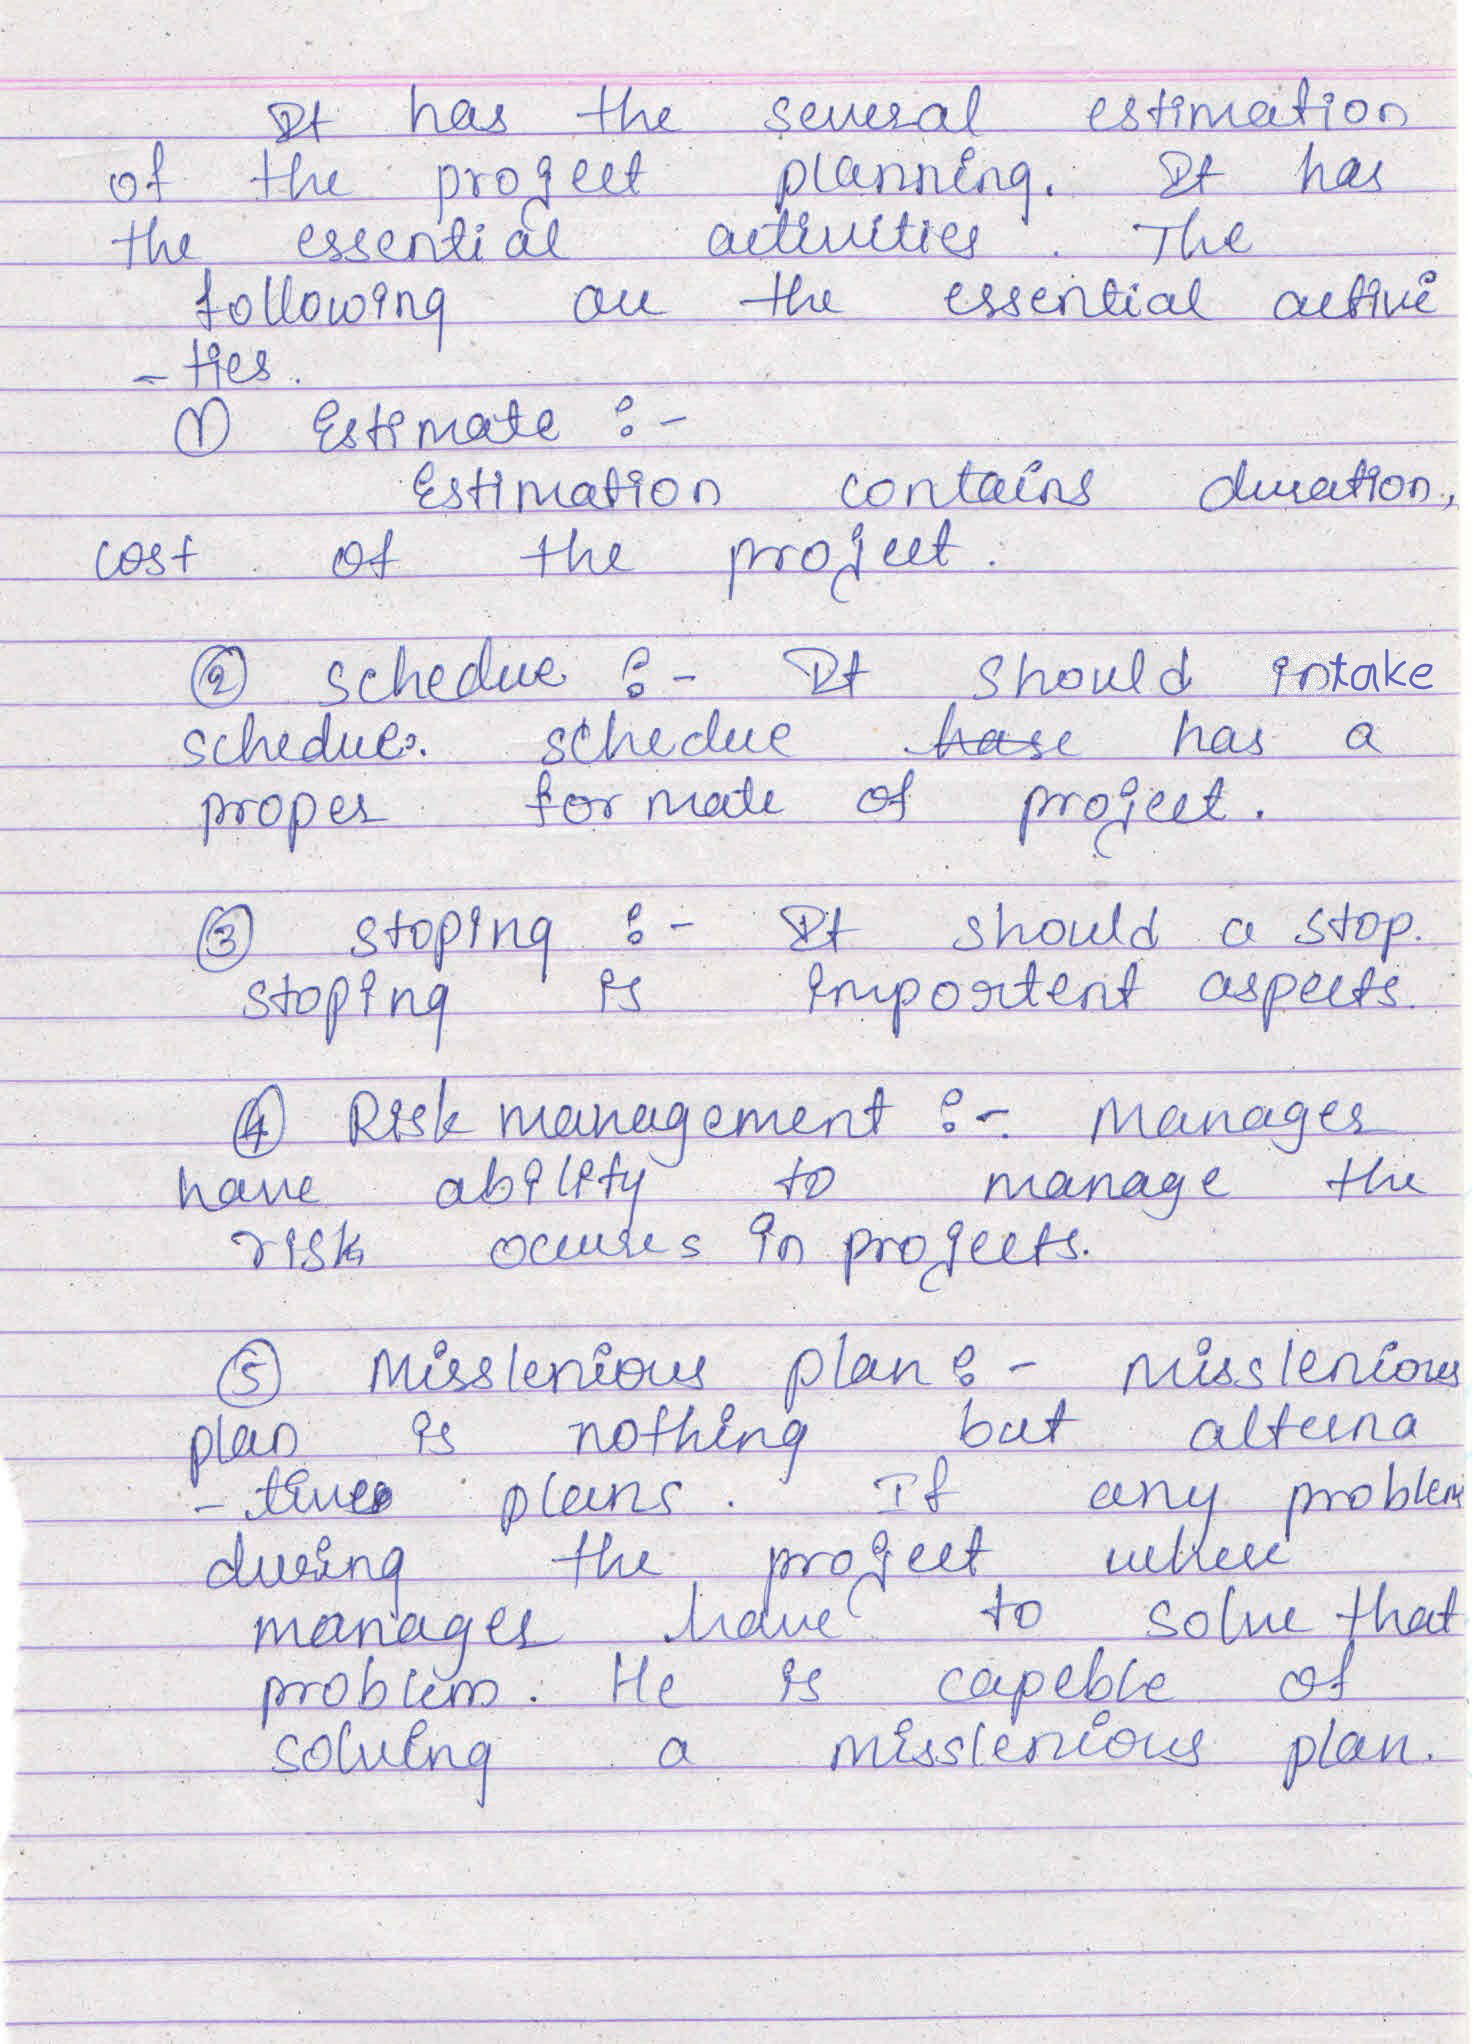 It has the several estimation
of the project planning. It has
the essential activities. The
following are the essential active
- ties.
① Estimate :-
Estimation contains duration,
cost of the project.
② schedue :- It should intake
schedue. schedue hase has a
proper formate of project.
③ stoping :- It should a stop.
stoping is importent aspects.
④ Risk management :- Manager
have ability to manage the
risk occures in projects.
⑤ Misslenious plan :- misslenious
plan is nothing but alterna
- tive plans. If any problem
during the project where
manager have to solve that
problem. He is capeble of
solving a misslenious plan.